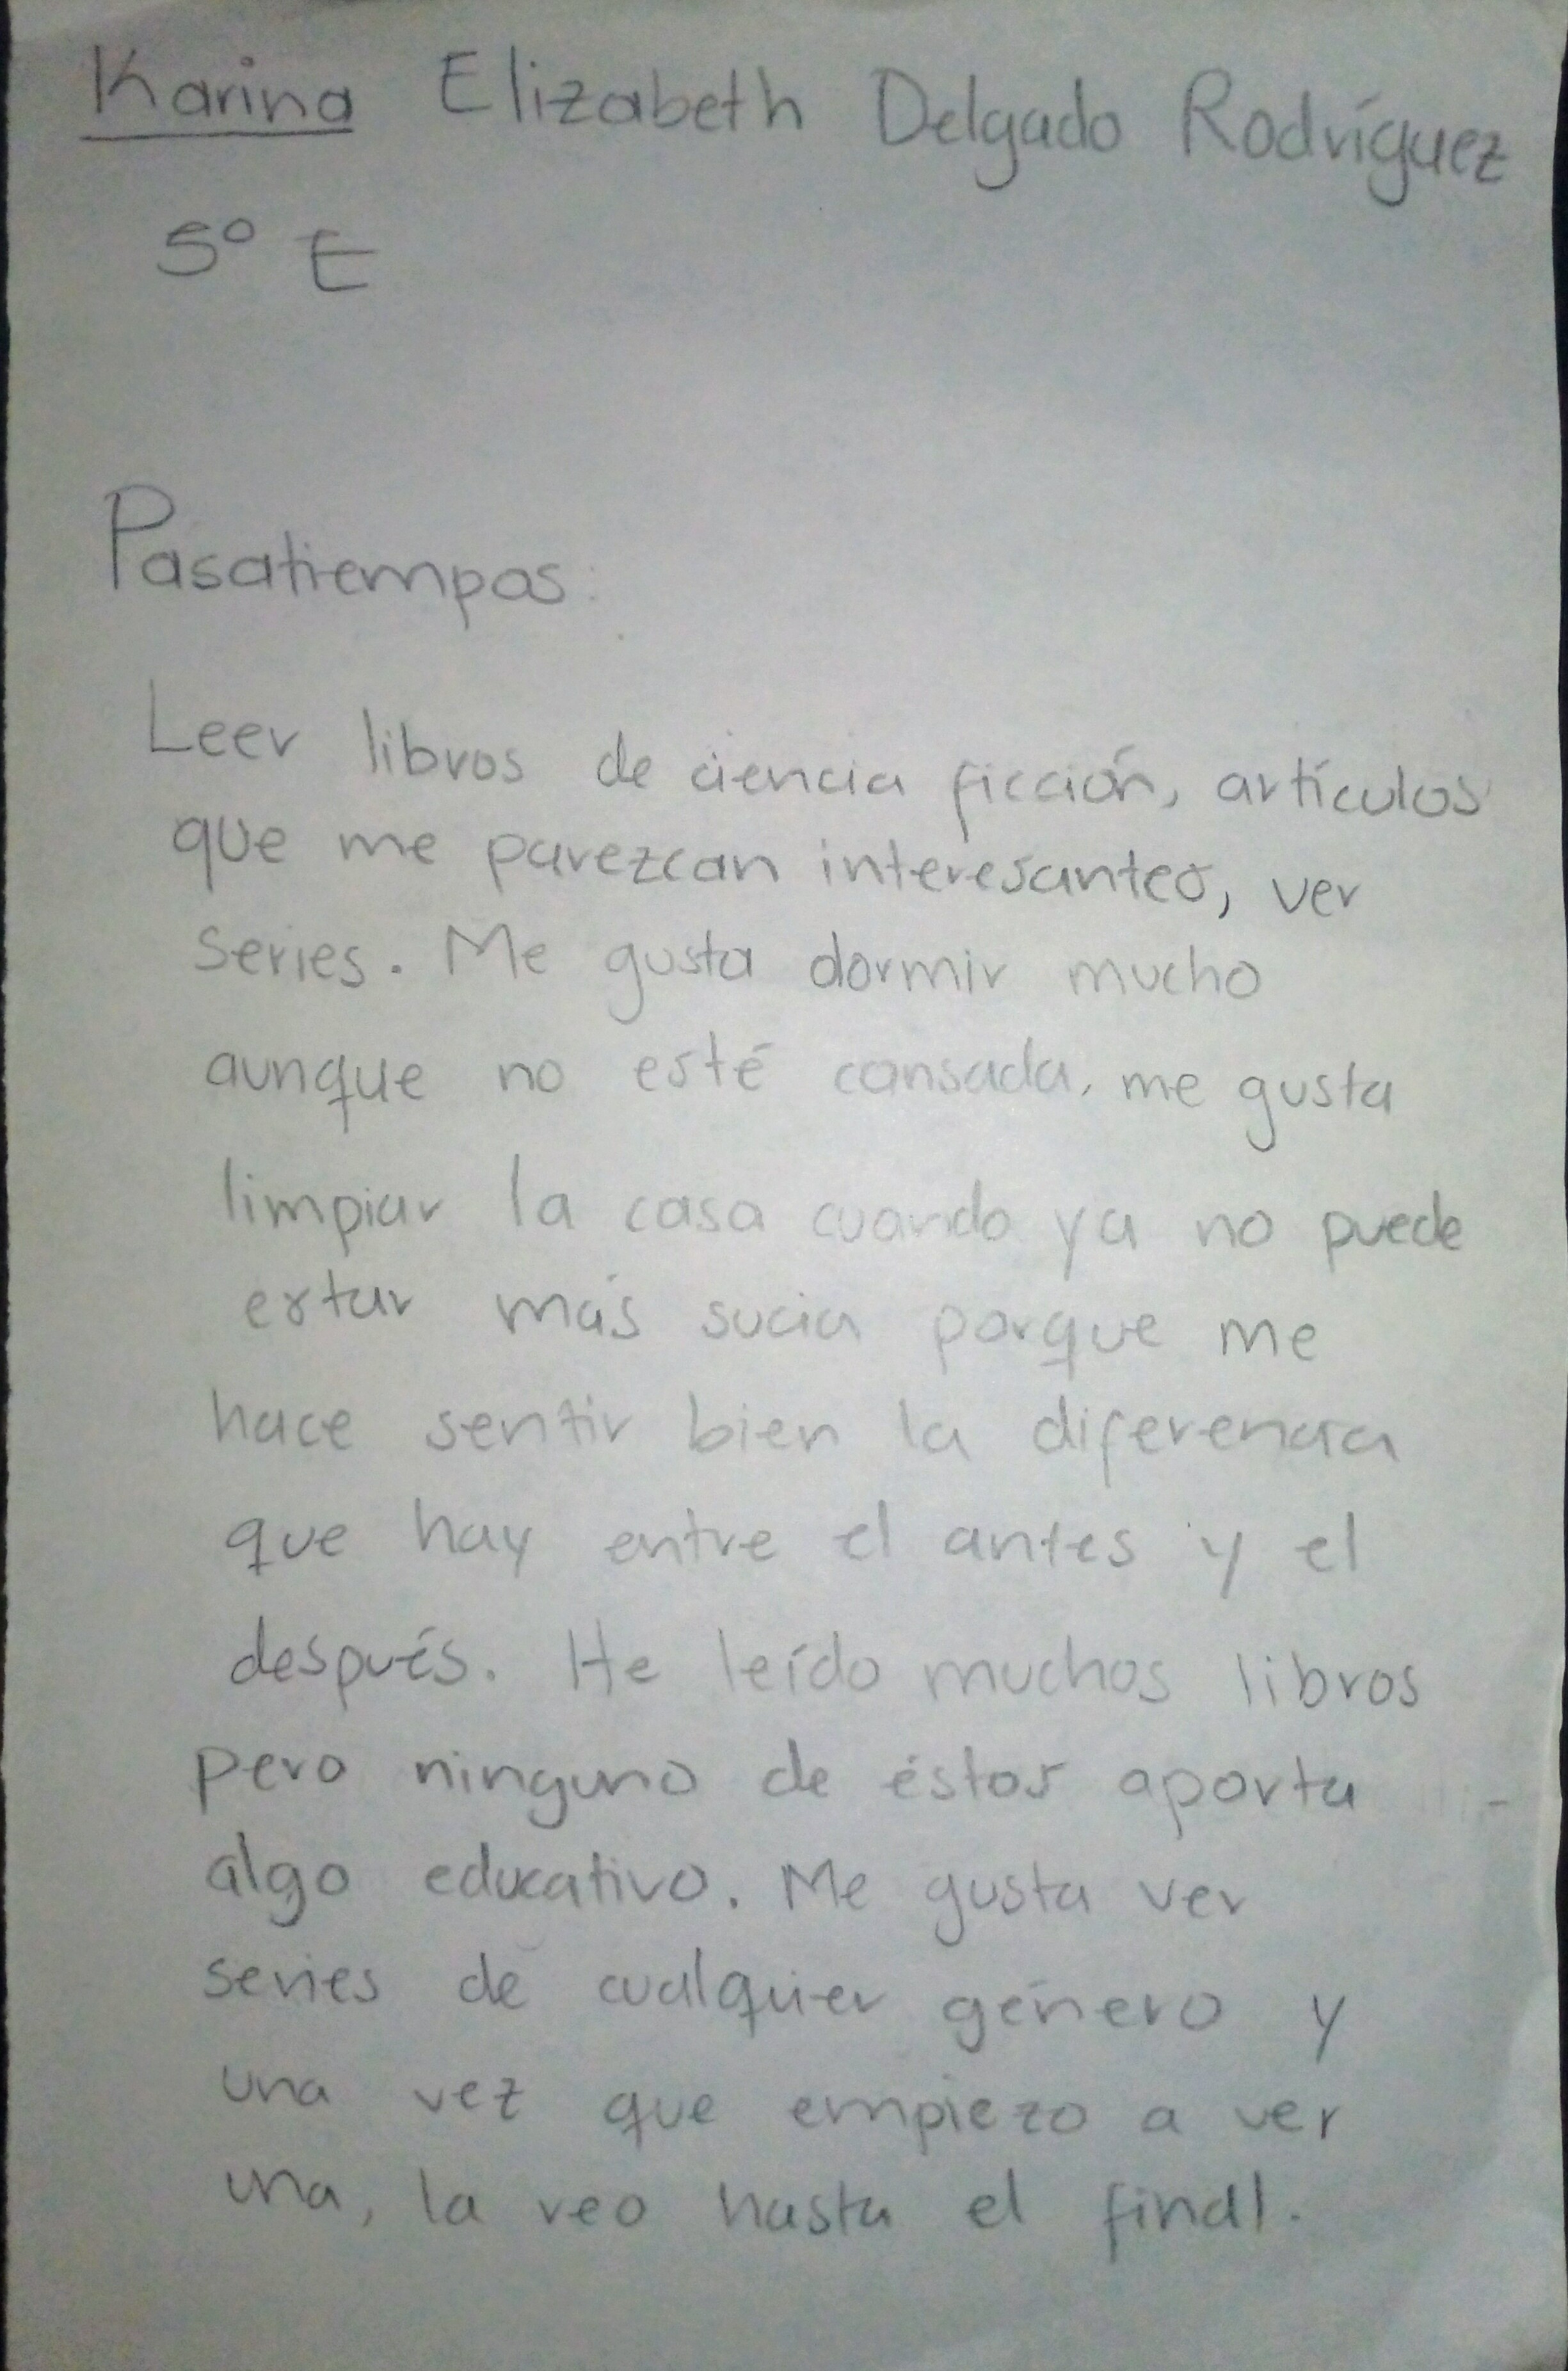 Karina Elizabeth Delgado Rodríguez
5° E
Pasatiempos:
Leer libros de ciencia ficción, artículos
que me parezcan interesantes, ver
series. Me gusta dormir mucho
aunque no esté cansada, me gusta
limpiar la casa cuando ya no puede
estar más sucia porque me
hace sentir bien la diferencia
que hay entre el antes y el
después. He leído muchos libros
pero ninguno de éstos aporta
algo educativo. Me gusta ver
series de cualquier género y
una vez que empiezo a ver
una, la veo hasta el final.